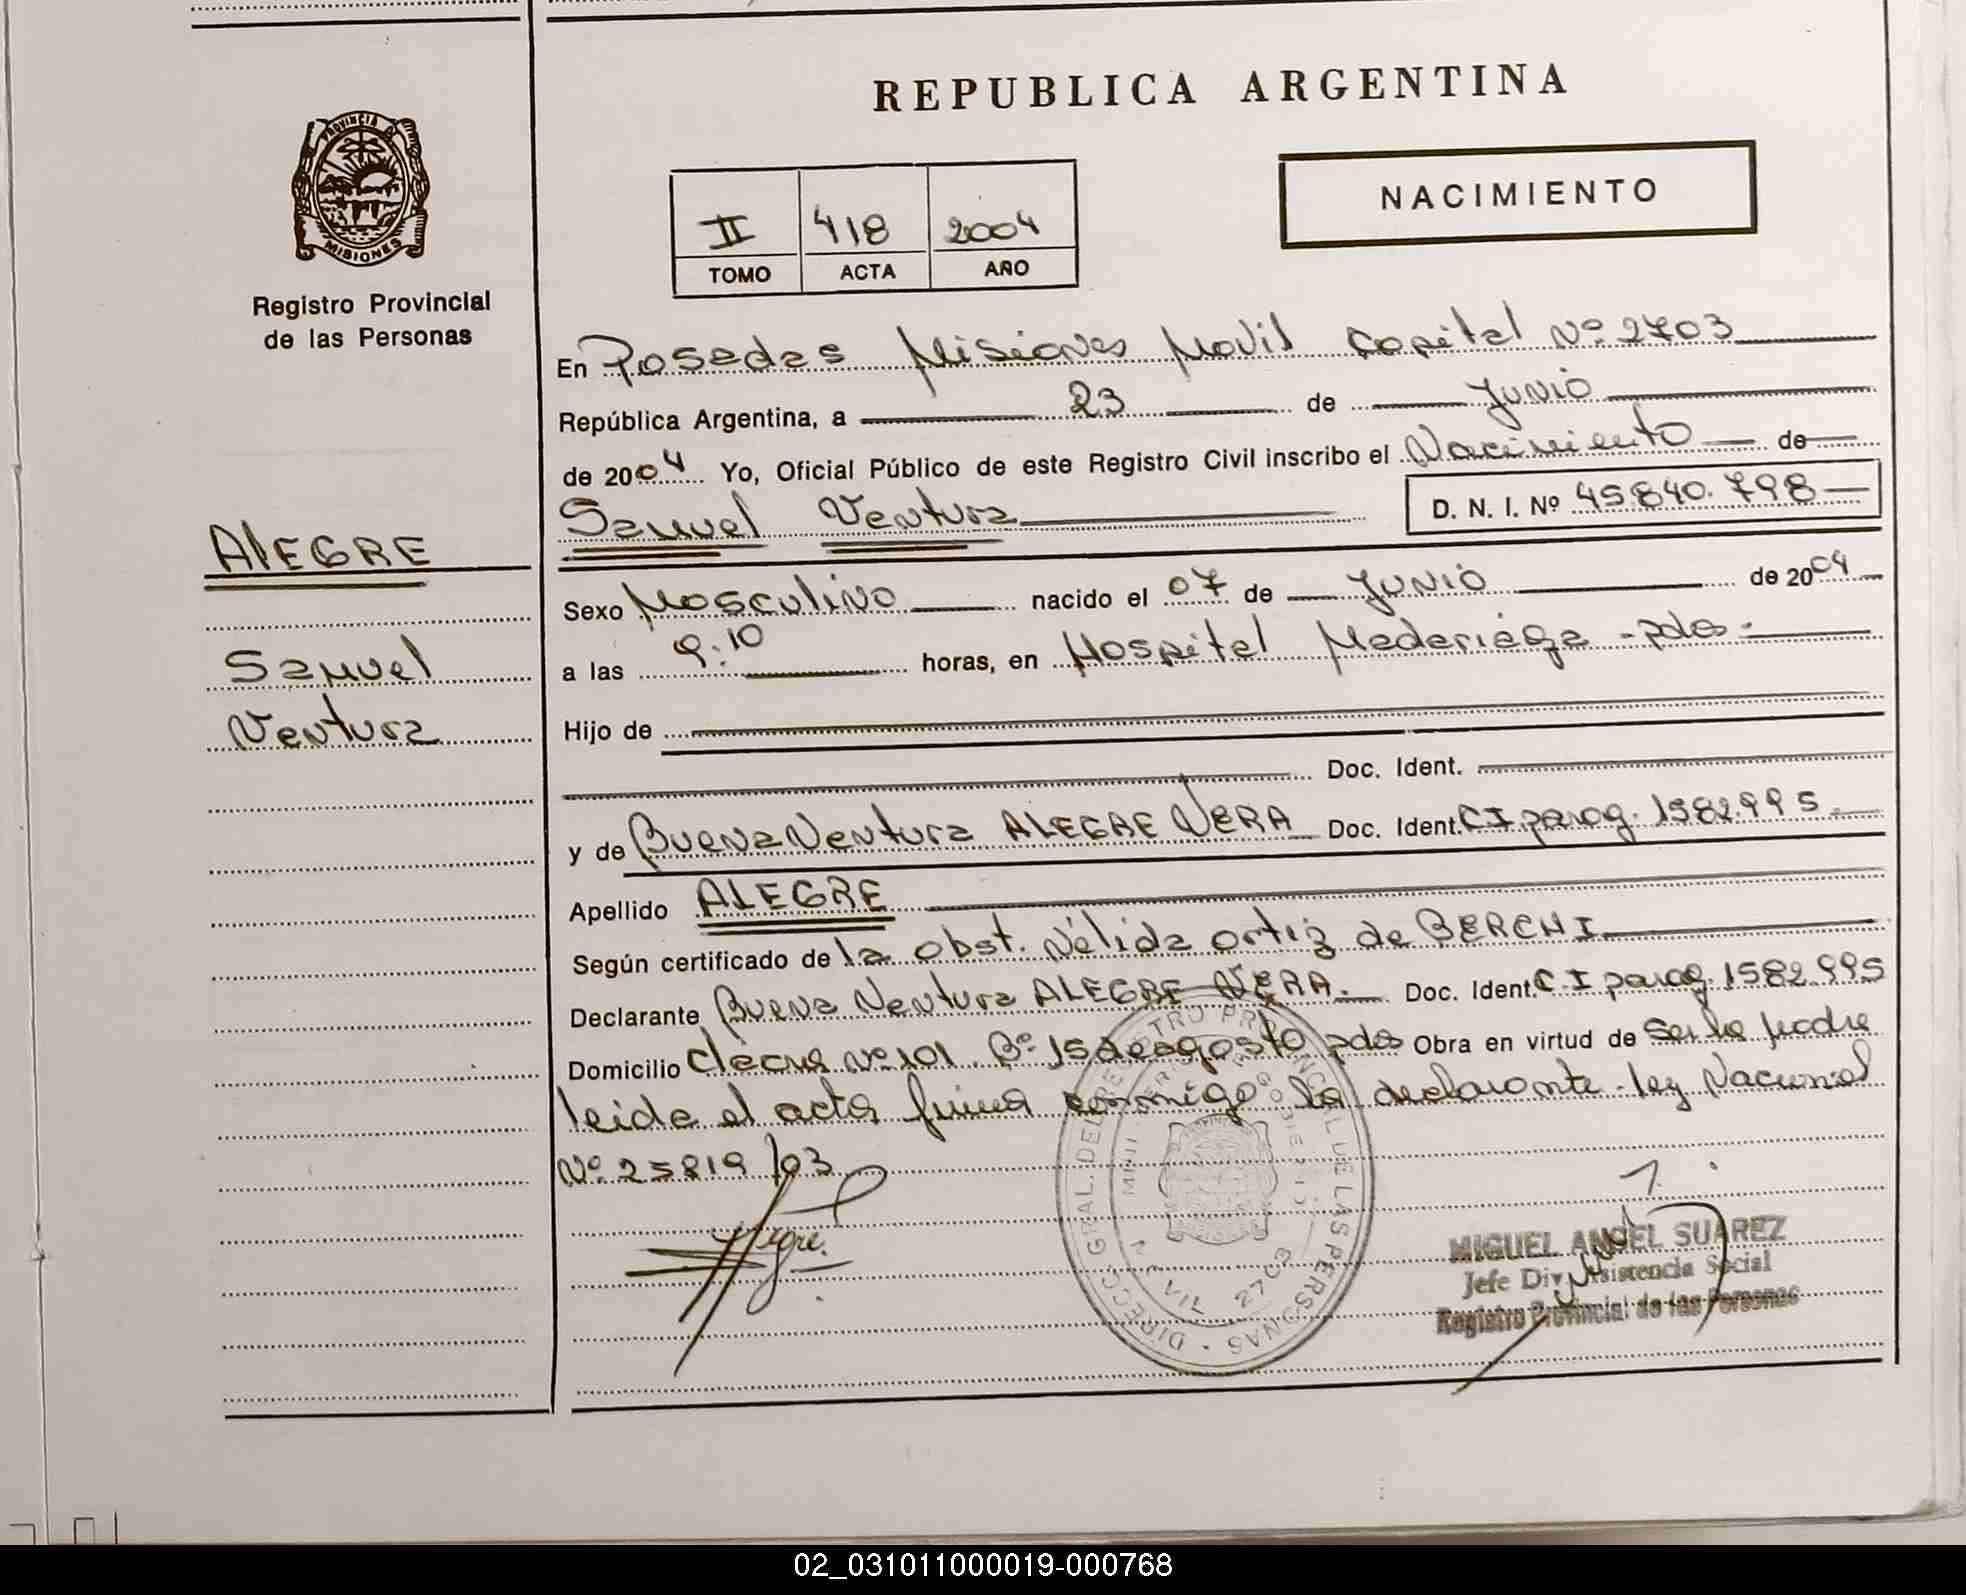 REPUBLICA ARGENTINA
PROVINCIA DE
MISIONES
Registro Provincial
de las Personas
NACIMIENTO
II 418 2004
TOMO ACTA AÑO
En Posadas Misiones Movil Capital Nº 2703
República Argentina, a 23 de Junio
de 2004 Yo, Oficial Público de este Registro Civil inscribo el Nacimiento de
Samuel Ventura D. N. I. Nº 45.840.798
ALEGRE
Samuel
Ventura
Sexo Masculino nacido el 07 de Junio de 2004
a las 9:10 horas, en Hospital Madariaga - pdas -
Hijo de
Doc. Ident.
y de Buena Ventura ALEGRE VERA Doc. Ident. CI parag. 1582.995
Apellido ALEGRE
Según certificado de la obst. Nélida Ortiz de BERCHI
Declarante Buena Ventura ALEGRE VERA. Doc. Ident. C.I parag. 1582.995
Domicilio Nº 101 Bº 15 de agosto pdas Obra en virtud de Ser la Madre
leida el acta firma conmigo la declarante. ley Nacional
Nº 25819/03
DIRECC. GRAL. DEL REGISTRO PROVINCIAL DE LAS PERSONAS
MOVIL 2703
MIGUEL ANGEL SUAREZ
Jefe Div. Asistencia Social
Registro Provincial de las Personas
02_031011000019-000768